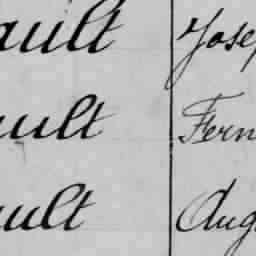 ault Josep
ault Fern
ault Aug